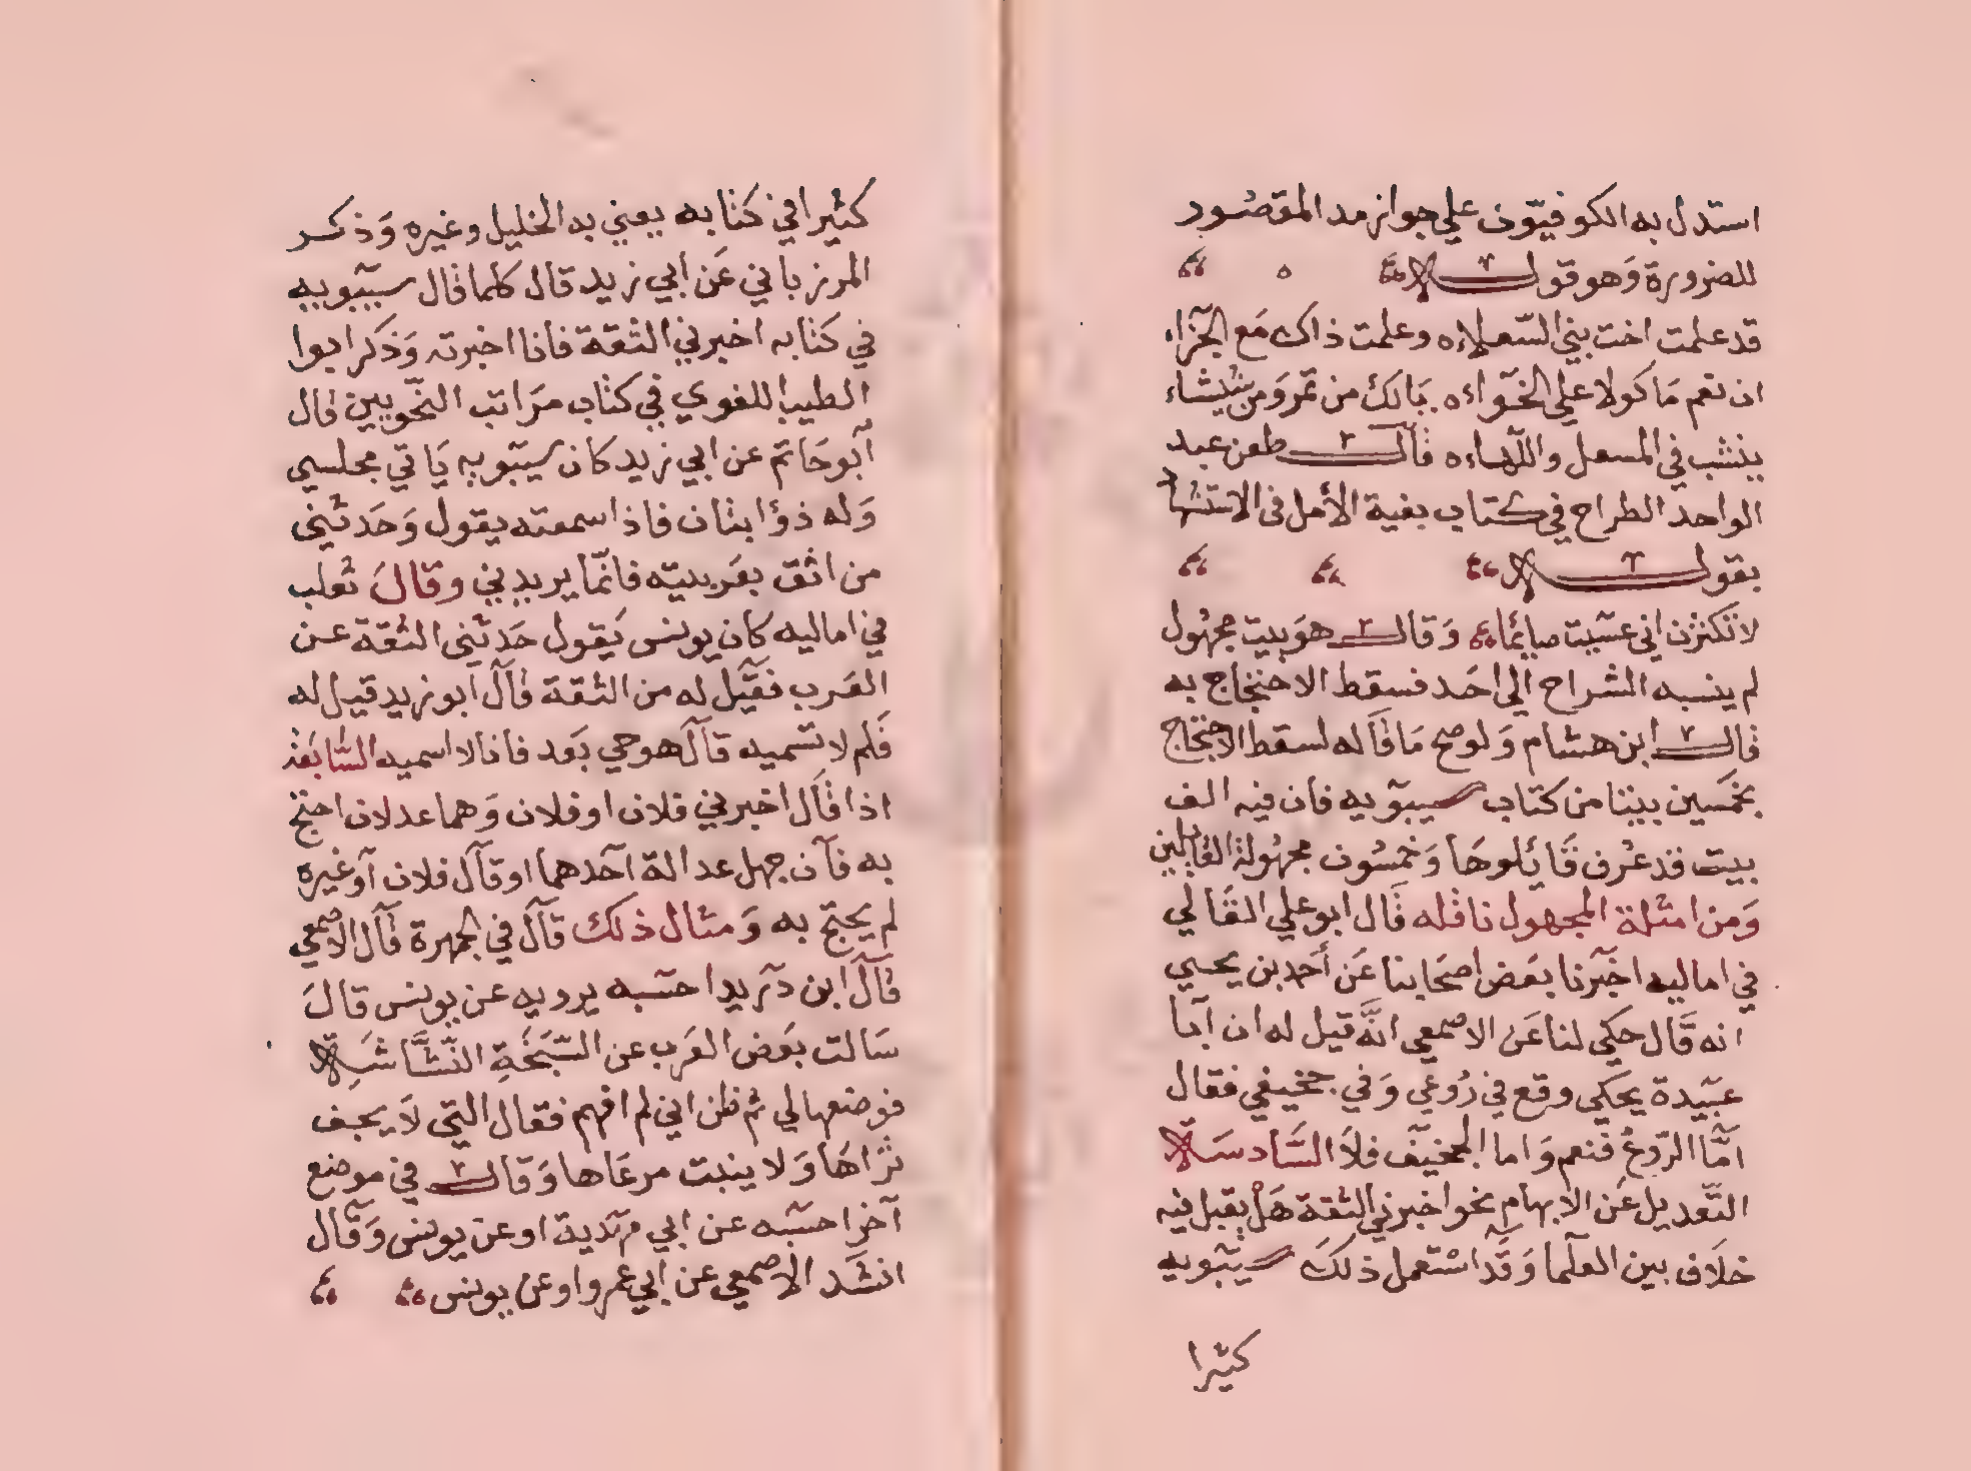 استدل به الكوفيّون علي جواز مد المقصُود
للضرورة وَهو قولـــه
قد علمت اخت بني السّعلاءه وعلمت ذاك مَع الجَزاء
ان نعم مَا كولا علي الخَواءه يَالك من تمر وَمن شيشاء
ينشب في المسعل واللّهاءه قالـــ طعن عبد
الواحد الطراح في كتاب بغية الأمل في الاستشهاد
بقولـــه
لا تكثرن اني عسَيت صائمًا وَقالـــ هوَ بيت مجهُول
لم ينسبه الشراح الي احَد فسقط الاحتجاج به
قالـــ ابن هشام وَلوصح مَا قاله لسقط الاحتجاج
بخمَسين بيتا من كتاب سيبوَيه فان فيه الف
بيت قد عُرف قَائلوهَا وَخمسُون مجهُولة القايلين
وَمن امثلة المجهول ناقله قَال ابو علي القَالي
في اماليه اخبَرنا بعَض اصحَابنا عَن أحَمد بن يحيي
انه قَال حكي لنا عَن الاصمعي انَّه قيل له ان ابا
عبَيدة يحكي وقع في رُوعي وَفي جخيفي فقال
امَّا الرّوعُ فنعم وَاما الجخيف فلاَ السَّادسَـة
التَّعديل عَن الابهام نحو اخبرني الثقة هَل يقبل فيه
خلاَف بين العلَما وَقَد اسْتعمل ذلكَ سيبَويه
كثيرا
كثيرا في كتَابه يعني به الخليل وغيره وَذكـر
المرزباني عَن ابي زيد قال كلما قال سيبَويه
في كتابه اخبرني الثقة فانا اخبرته وَذكر ابوا
الطيب اللغوي في كتاب مرَاتب النحّويين قال
أبو حَاتم عن ابي زيد كان سيبَويه يَاتي مجلسي
وَله ذؤابتان فاذا سمعته يقول وَحَدثني
من اثق بعَربيته فانمّا يريدني وقالَ ثعلب
في اماليه كان يونس يَقول حَدثني الثقة عـن
العَرب فقَيل له من الثقة قال ابو زيد قيل له
فَلم لا تسَميه قال هو حي بَعد فانا لا اسميه السَّابعَة
اذا قَال اخبرني فلان او فلان وَهما عدلان احتج
به فان جهل عدالة احَدهما او قال فلان أو غيره
لم يحَتج به وَمثال ذلك قال في الجمهرة قال الاصمعي
قال ابن دريد احسَبه يرويه عن يونس قالَ
سَالت بعَض العَرب عن السَّبَخَةِ النّشَّاشَـة
فوضعها لي ثم ظن اني لم افهم فقال التي لاَ يجف
ثَراهَا وَلا ينبت مرعَاها وَقالـــ في موضع
آخر احسَبه عن ابي مهَدية او عن يونس وَقال
انشَد الاصمعي عن ابي عمرو او عن يونس